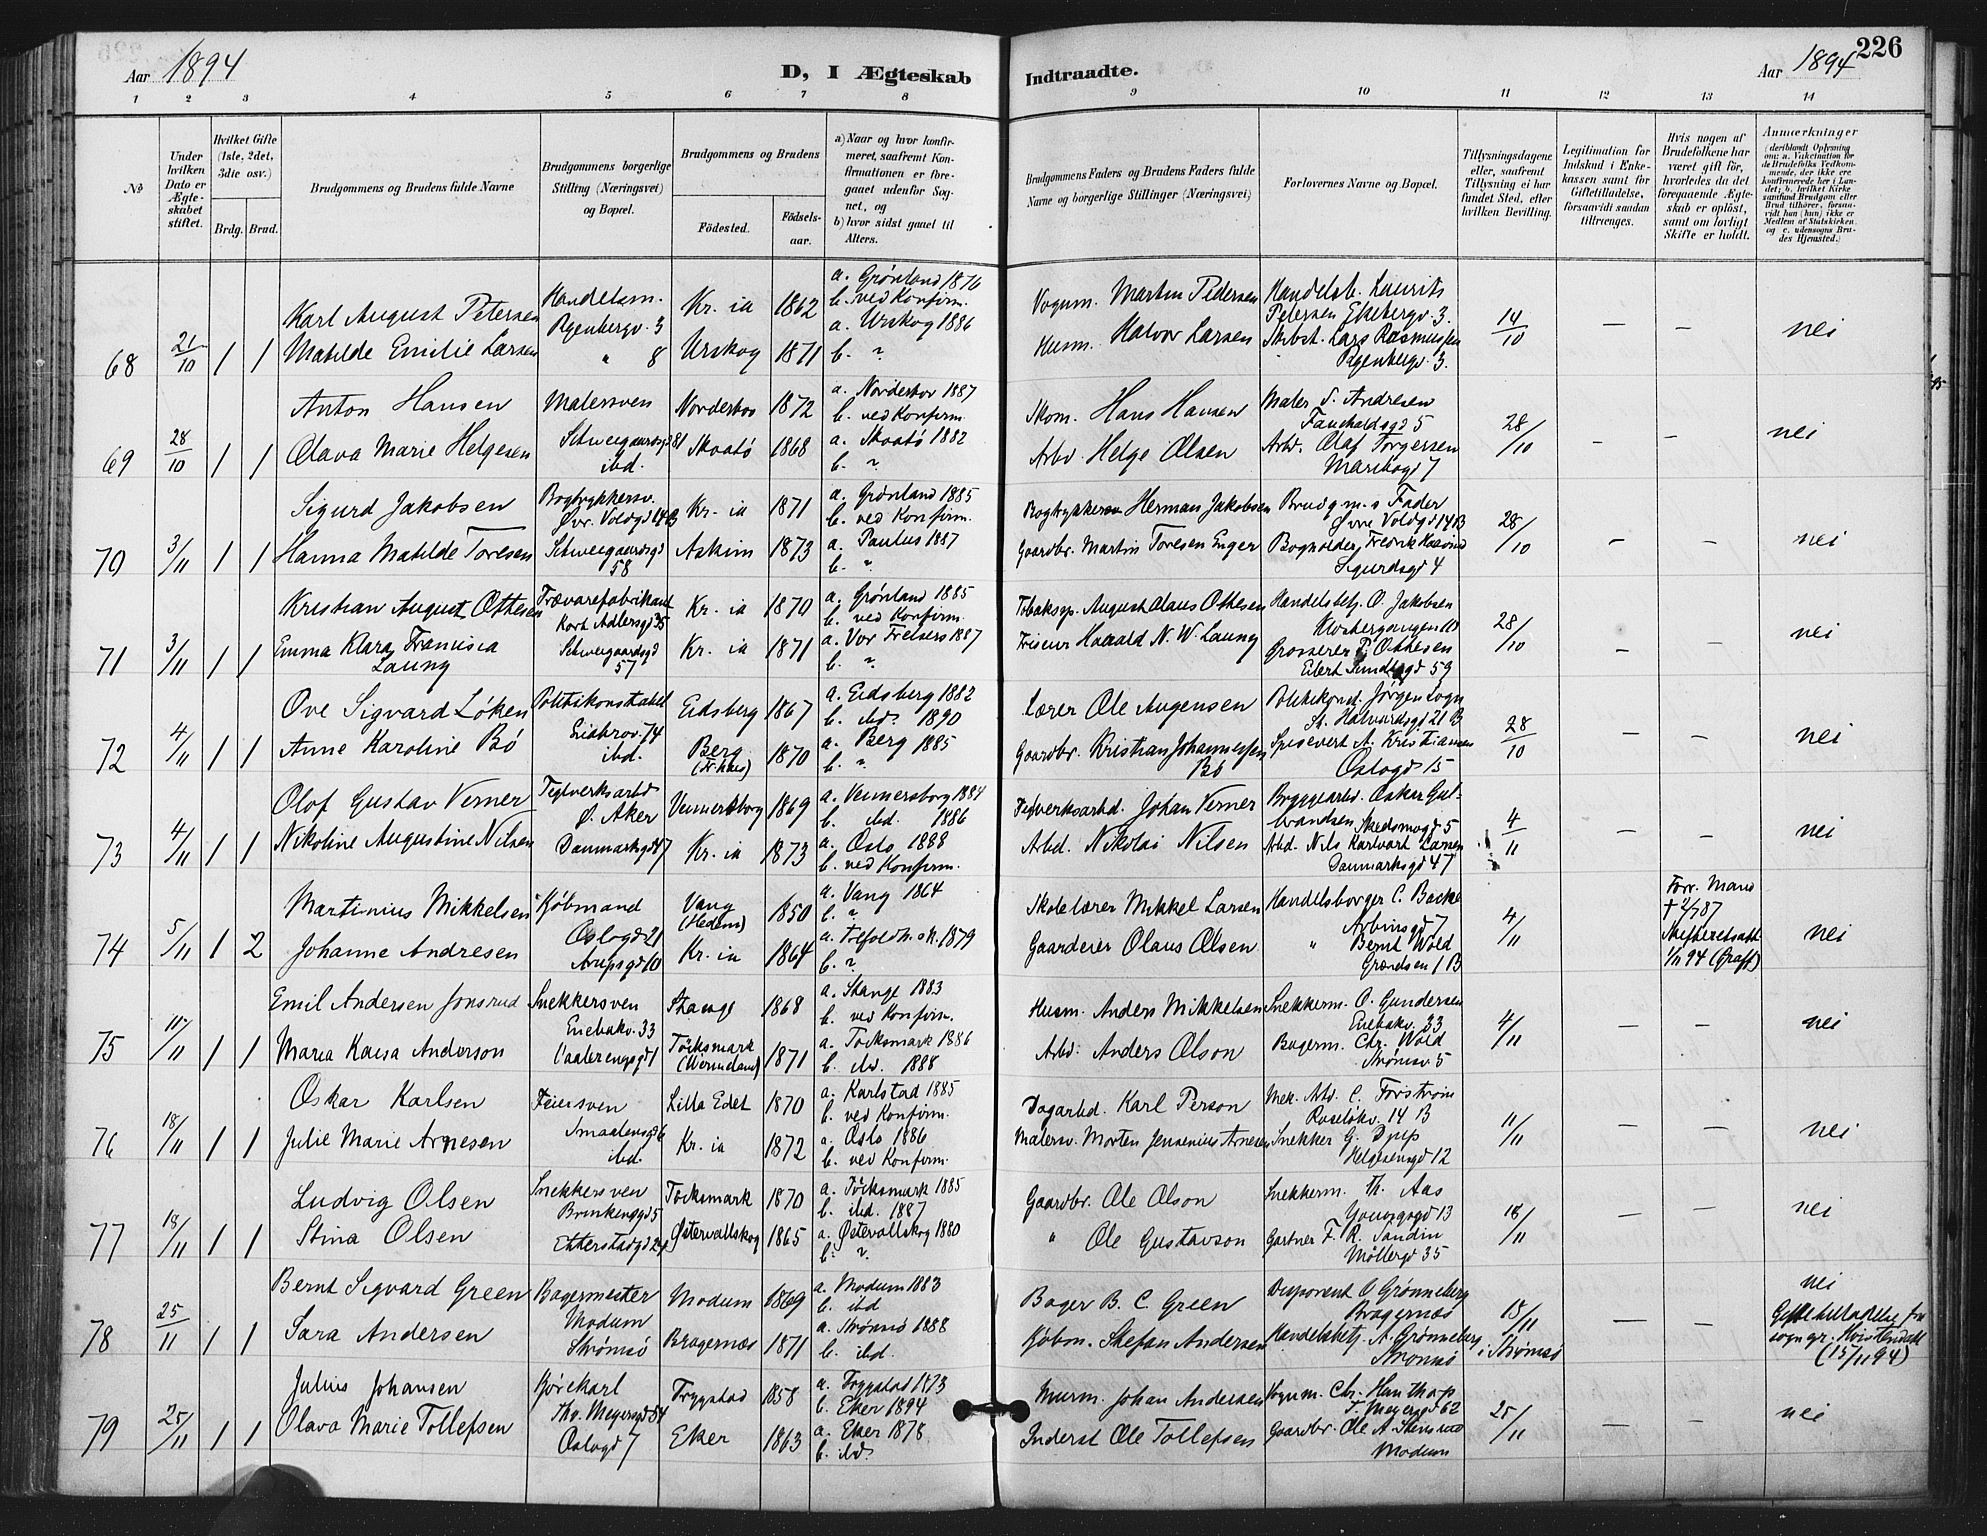 226
Aar 1894
D, I Ægteskab
Indtraadte.
Aar 1894
1 2 3 4 5 6 7 8 9 10 11 12 13 14
No
Under hvilken Dato er Ægteskabet stiftet.
Hvilket Gifte (1ste, 2det, 3die osv.)
Brdg. Brud.
Brudgommens og Brudens fulde Navne
Brudgommens borgerlige Stilling (Næringsvei) og Bopæl.
Brudgommens og Brudens
Fødested.
Fødselsaar.
a) Naar og hvor konfirmeret, saafremt Konfirmationen er foregaaet udenfor Sognet, og
b) hvor sidst gaaet til Alters.
Brudgommens Faders og Brudens Faders fulde Navne og borgerlige Stillinger (Næringsvei)
Forlovernes Navne og Bopæl.
Tillysningsdagene eller, saafremt Tillysning ei har fundet Sted, efter hvilken Bevilling.
Legitimation for Indskud i Enkekassen samt for Giftetilladelse, forsaavidt saadan tiltrænges.
Hvis nogen af Brudefolkene har været gift før, hvorledes da det foregaaende Ægteskab er opløst, samt om lovligt Skifte er holdt.
Anmærkninger
(deriblandt Oplysning om: a. Vakcination for de Brudefolks Vedkommende, der ikke ere konfirmerede her i Landet; b. hvilket Kirkesamfund Brudgom eller Brud tilhører, forsaavidt han (hun) ikke er Medlem af Statskirken. og c. udensogns Brudes Hjemsted.)
68 21/10 1 1
Karl August Petersen Handelsm. Kr. ia 1862 a. Grønland 1876 b. ved Konfirm.
Matilde Emilie Larsen " 8 Urskog 1871 a. Urskog 1886 b. ?
Vognm. Martin Pedersen Handelsb. Laurits Petersen Ekebergv. 3.
Husm. Halvor Larsen Skibst. Lars Rasmussen
14/10 — — nei
69 28/10 1 1
Anton Hansen Malersven Norderhov 1872 a. Norderhov 1887 b. ved Konfirm.
Olava Marie Helgesen Schweigaardsgd 81 ibd. Skaatø 1868 a. Skaatø 1882 b. ?
Skom. Hans Hansen Maler S. Andresen Fauchaldsgd 5
Arbd. Helge Olsen Arbd. Olaf Torgersen Maribogd 7
28/10 — — nei
70 3/11 1 1
Sigurd Jakobsen Bogtrykkersv. Øvr. Voldgd 14B Kr. ia 1871 a. Grønland 1885 b. ved Konfirm.
Hanna Matilde Toresen Schweigaardsgd 58 Askim 1873 a. Paulus 1887 b. "
Bogtrykkersv Herman Jakobsen Brudgm.s Fader Øvre Voldgd 14 B
Gaardbr. Martin Toresen Enger Bogholder Fredrik Sigurdsgd 4
28/10 — — nei
71 3/11 1 1
Kristian August Ottesen Trævarefabrikant Kort Adlersgd 35 Kr. ia 1870 a. Grønland 1885 b. ved Konfirm.
Emma Klara Francisca Laung Schweigaardsgd 57 Kr. ia 1871 a. Vor Frelsers 1887 b. ?
Tobaksp. August Claus Ottesen Handelsbetj. O. Jakobsen
Friseur Harald N. W. Laung Grosserer F. Ottesen Eilert Sundtsgd 59
28/10 — — nei
72 4/11 1 1
Ove Sigvard Løken Politikonstabel Eidsberg 1867 a. Eidsberg 1882 b. ibd. 1890
Anne Karoline Bø ibd. Berg 1870 a. Berg 1885 b. "
Lærer Ole Augensen Politikonst. Jørgen Logn St. Halvardsgd 21 B
Gaardbr. Kristian Johannessen Bø Spisevert A. Kristiansen Oslogd 15
28/10 — — nei
73 4/11 1 1
Olof Gustav Verner Teglverksarbd Ø. Aker Vennersborg 1869 a. Vennersborg 1884 b. ibd. 1886
Nikoline Augustine Nilsen Danmarksgd 47 Kr. ia 1873 a. Oslo 1888 b. ved Konfirm.
Teglverksarbd. Johan Verner Byggearbd. Oskar Gulbrandsen Skedsmogd 5
Arbd. Nikolai Nilsen Arbd. Nils Kartvart Larsen Danmarksgd 47
4/11 — — nei
74 5/11 1 2
Martinius Mikkelsen Kjøbmand Oslogd 21 Vang (Hedem) 1850 a. Vang 1864 b. "
Johanne Andresen Arupsgd 10 Kr. ia 1864 a. 1879 b. ?
Skolelærer Mikkel Larsen Handelsborger C. Backe Arbinsgd 7
Gaardeier Olaus Olsen " Bernt Wold Grændsen 1 B
4/11 — Forr. Mand † 2/7 87 Skifteretsatt. 1/11 94 nei
75 10/11 1 1
Emil Andersen Jonsrud Snekkersven Enebakv. 33 Stange 1868 a. Stange 1883 b. ved Konfirm.
Maria Kaisa Anderson Vaalerengsgd 1 Töcksmark (Wermeland) 1871 a. Töcksmark 1886 b. ibd. 1888
Husm. Anders Mikkelsen Snekkerm. O. Gundersen Enebakv. 33
Arbd. Anders Olson Bagerm. Chr. Wold Strømsv 5
4/11 — — nei
76 18/11 1 1
Oskar Karlsen Feiersven Lilla Edet 1870 a. Karlstad 1885 b. ved Konfirm.
Julie Marie Arnesen Smaalensgd 6 ibd. Kr. ia 1872 a. Oslo 1886 b. ved Konfirm.
Dagarbd. Karl Person Mek. Arbd. C. Forstrøm Ruseløkv. 14 B
Malersv. Morten Jensenius Arnesen Snekker G. Djup Helgesensgd 12
11/11 — — nei
77 18/11 1 1
Ludvig Olsen Snekkersven Brinkensgd 5 Töcksmark 1870 a. Töcksmark 1885 b. ibd. 1887
Stina Olsen Etterstadgd Østervallskog 1865 a. Østervallskog 1880 b. ?
Gaardbr. Ole Olson Snekkerm. Th. Aas
" Ole Gustavson Gartner F. R. Sandin Møllergd 35
18/11 — — nei
78 25/11 1 1
Bernt Sigvard Green Bagermester Modum Modum 1869 a. Modum 1883 b. ibd
Sara Andersen Strømsø Bragernæs 1871 a. Strømsø 1888 b. ibd.
Bager B. C. Green Disponent O Grønneberg Bragernæs
Kjøbm. Stefan Andersen Handelsbetj. A. Grønneberg Strømsø
18/11 i Strømsø — — nei
(15/11 94)
79 25/11 1 1
Julius Johansen Kjørekarl Th. Meyersgd 54 Trygstad 1858 a. Trygstad 1873 b. Eker 1894
Olava Marie Tollefsen Oslogd 7 Eker 1863 a. Eker 1878 b. ibd.
Murm. Johan Andersen Vognm. Chr. Hansthorp T. Meyersgd 62
Inderst Ole Tollefsen Gaardbr. Ole A. Stensrud Modum
25/11 — — nei